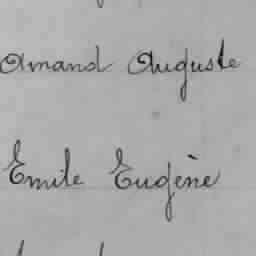 Amand Auguste
Emile Eugène